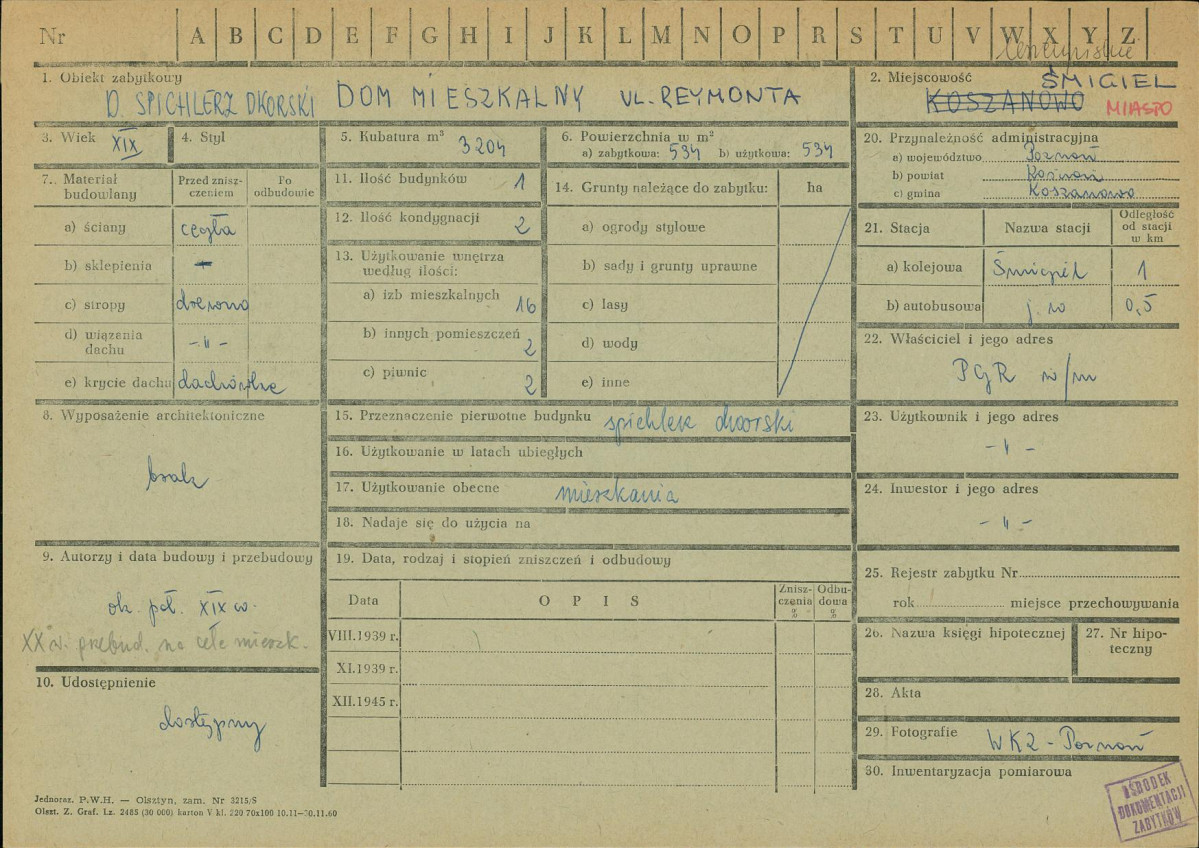 Nr A B C D E F G H I J K L M N O P R S T U V W X Y Z
1. Obiekt zabytkowy
D. SPICHLERZ DWORSKI DOM MIESZKALNY UL. REYMONTA
2. Miejscowość ŚMIGIEL
KOSZANOWO MIASTO
3. Wiek XIX
4. Styl
5. Kubatura m³ 3204
6. Powierzchnia w m²
a) zabytkowa: 534 b) użytkowa: 534
7. Materiał budowlany
Przed zniszczeniem
Po odbudowie
a) ściany cegła
b) sklepienia -
c) stropy drewno
d) wiązania dachu -"-
e) krycie dachu dachówka
8. Wyposażenie architektoniczne
brak
9. Autorzy i data budowy i przebudowy
ok. poł. XIX w.
XX w. przebud. na cele mieszk.
10. Udostępnienie
dostępny
11. Ilość budynków 1
12. Ilość kondygnacji 2
13. Użytkowanie wnętrza
według ilości:
a) izb mieszkalnych 16
b) innych pomieszczeń 2
c) piwnic 2
14. Grunty należące do zabytku: ha
a) ogrody stylowe
b) sady i grunty uprawne
c) lasy
d) wody
e) inne
15. Przeznaczenie pierwotne budynku spichlerz dworski
16. Użytkowanie w latach ubiegłych
17. Użytkowanie obecne mieszkania
18. Nadaje się do użycia na
19. Data, rodzaj i stopień zniszczeń i odbudowy
Data OPIS Zniszczenia % Odbudowa %
VIII.1939 r.
XI.1939 r.
XII.1945 r.
20. Przynależność administracyjna
a) województwo Poznań
b) powiat Kościan
c) gmina Koszanowo
21. Stacja Nazwa stacji Odległość od stacji w km
a) kolejowa Śmigiel 1
b) autobusowa j. w 0,5
22. Właściciel i jego adres
PGR w/m
23. Użytkownik i jego adres
-"-
24. Inwestor i jego adres
-"-
25. Rejestr zabytku Nr
rok miejsce przechowywania
26. Nazwa księgi hipotecznej
27. Nr hipoteczny
28. Akta
29. Fotografie WKZ - Poznań
30. Inwentaryzacja pomiarowa
OŚRODEK
DOKUMENTACJI
ZABYTKÓW
Jednoraz. P.W.H. — Olsztyn, zam. Nr 3215/S
Olszt. Z. Graf. Lz. 2485 (30 000) karton V kl. 220 70x100 10.11—30.11.60